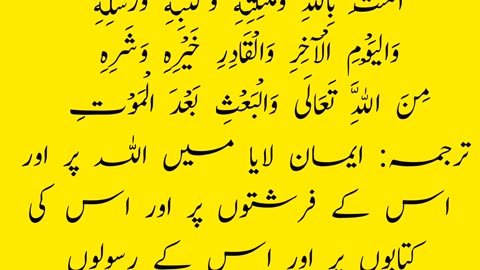 اٰمَنْتُ بِاللهِ وَمَلٰئِكَتِهٖ وَكُتُبِهٖ وَرُسُلِهٖ
وَالْيَوْمِ الْآخِرِ وَالْقَادِرِ خَيْرِهٖ وَشَرِّهٖ
مِنَ اللهِ تَعَالٰى وَالْبَعْثِ بَعْدَ الْمَوْتِ
ترجمہ: ایمان لایا میں اللہ پر اور
اس کے فرشتوں پر اور اس کی
کتابوں پر اور اس کے رسولوں